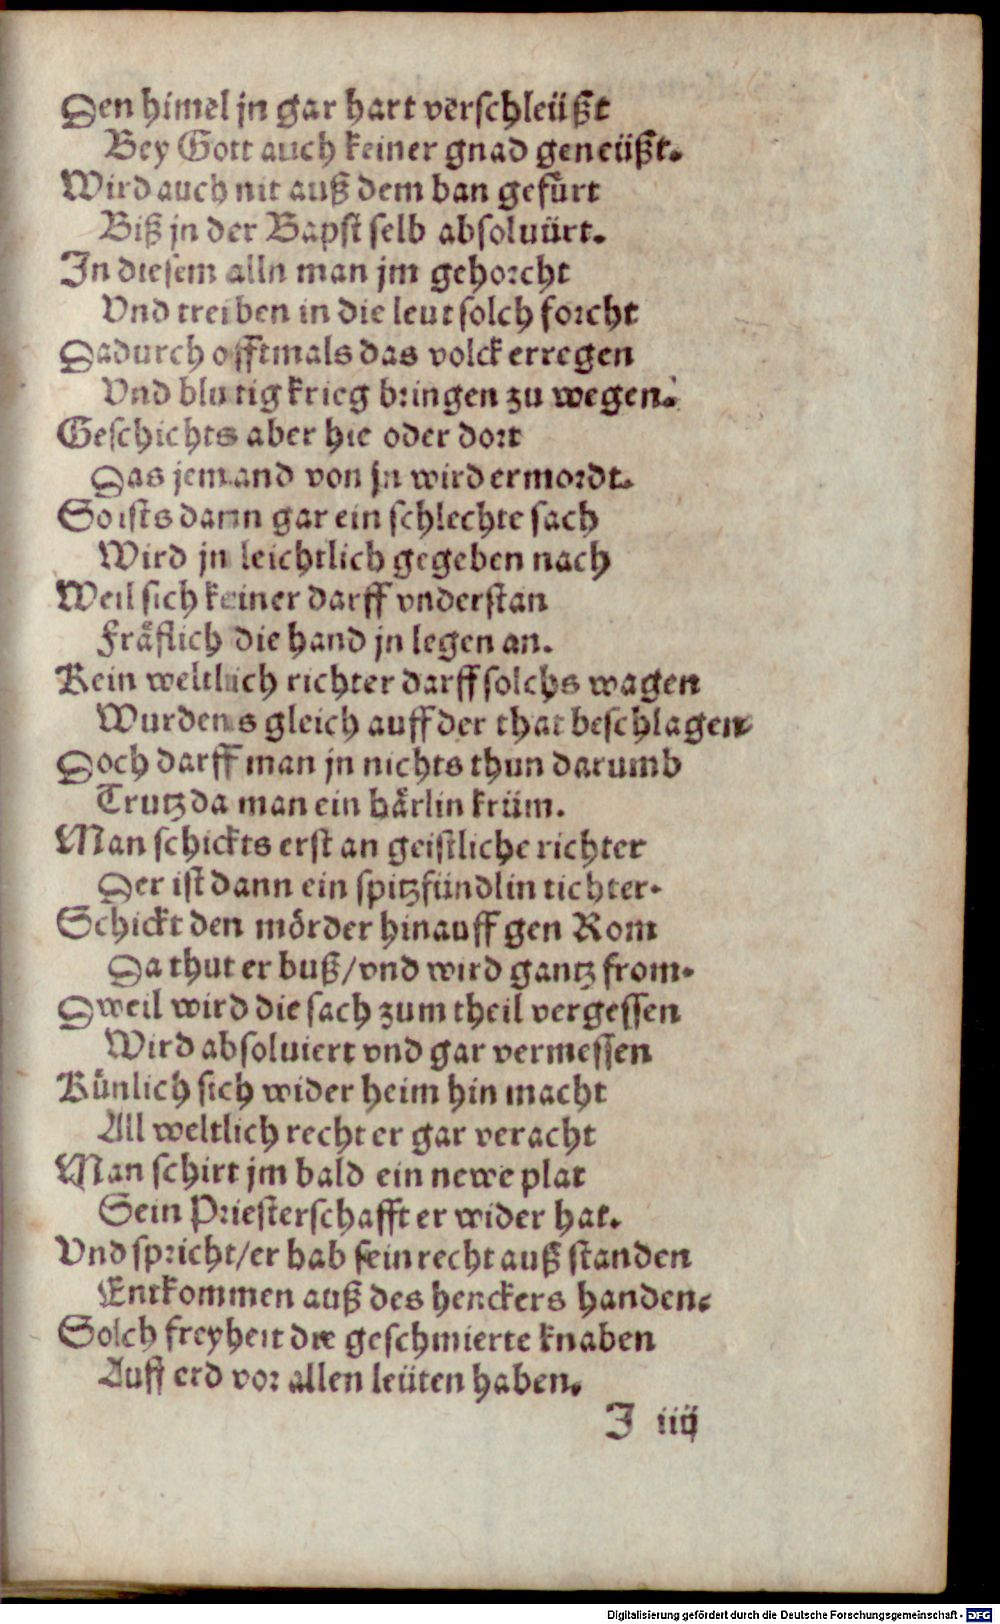 Den himel jn gar hart verschleüßt
Bey Gott auch keiner gnad geneüßt.
Wird auch nit auß dem ban gefürt
Biß jn der Bapst selb absoluürt.
In diesem alln man jm gehorcht
Vnd treiben in die leut solch forcht
Dadurch offtmals das volck erregen
Vnd blutig krieg bringen zu wegen.
Geschichts aber hie oder dort
Das jemand von jn wird ermordt.
So ists dann gar ein schlechte sach
Wird jn leichtlich gegeben nach
Weil sich keiner darff vnderstan
Fräflich die hand jn legen an.
Kein weltlich richter darff solchs wagen
Wurdens gleich auff der that beschlagen.
Doch darff man jn nichts thun darumb
Trutz da man ein härlin krüm.
Man schickts erst an geistliche richter
Der ist dann ein spitzfündlin tichter.
Schickt den mörder hinauff gen Rom
Da thut er buß/vnd wird gantz from.
Dweil wird die sach zum theil vergessen
Wird absoluiert vnd gar vermessen
Künlich sich wider heim hin macht
All weltlich recht er gar veracht
Man schirt jm bald ein newe plat
Sein Priesterschafft er wider hat.
Vnd spricht/er hab sein recht auß standen
Entkommen auß des henckers handen.
Solch freyheit die geschmierte knaben
Auff erd vor allen leüten haben.
J iiij
Digitalisierung gefördert durch die Deutsche Forschungsgemeinschaft - DFG